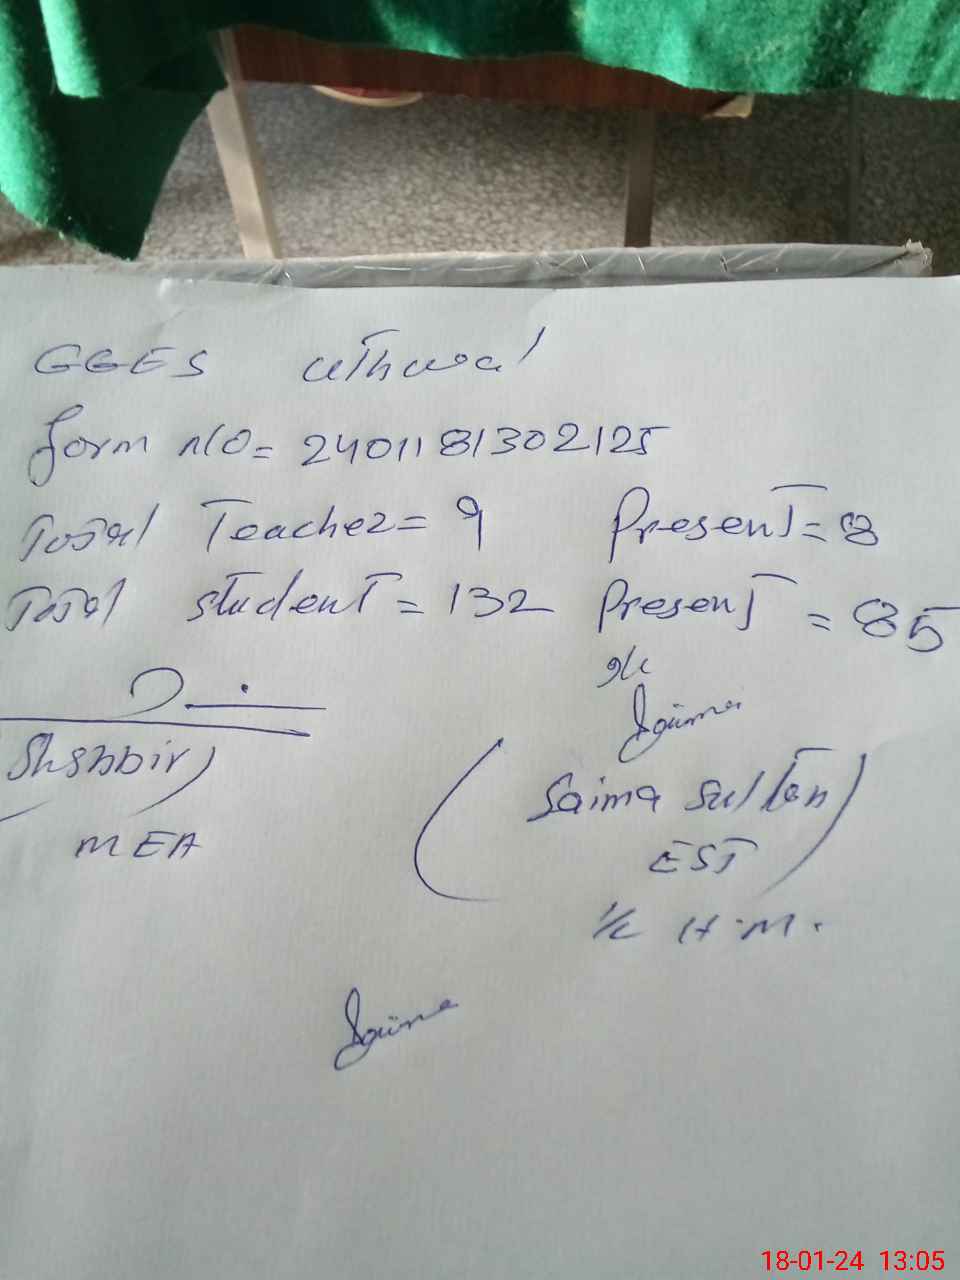 GGES uthwal
form NO = 2401181302125
Total Teacher = 9 Present = 8
Total student = 132 Present = 85
Shabbir)
MEA
Saima
(Saima Sultan)
EST
I/C H.M.
Saima
18-01-24 13:05